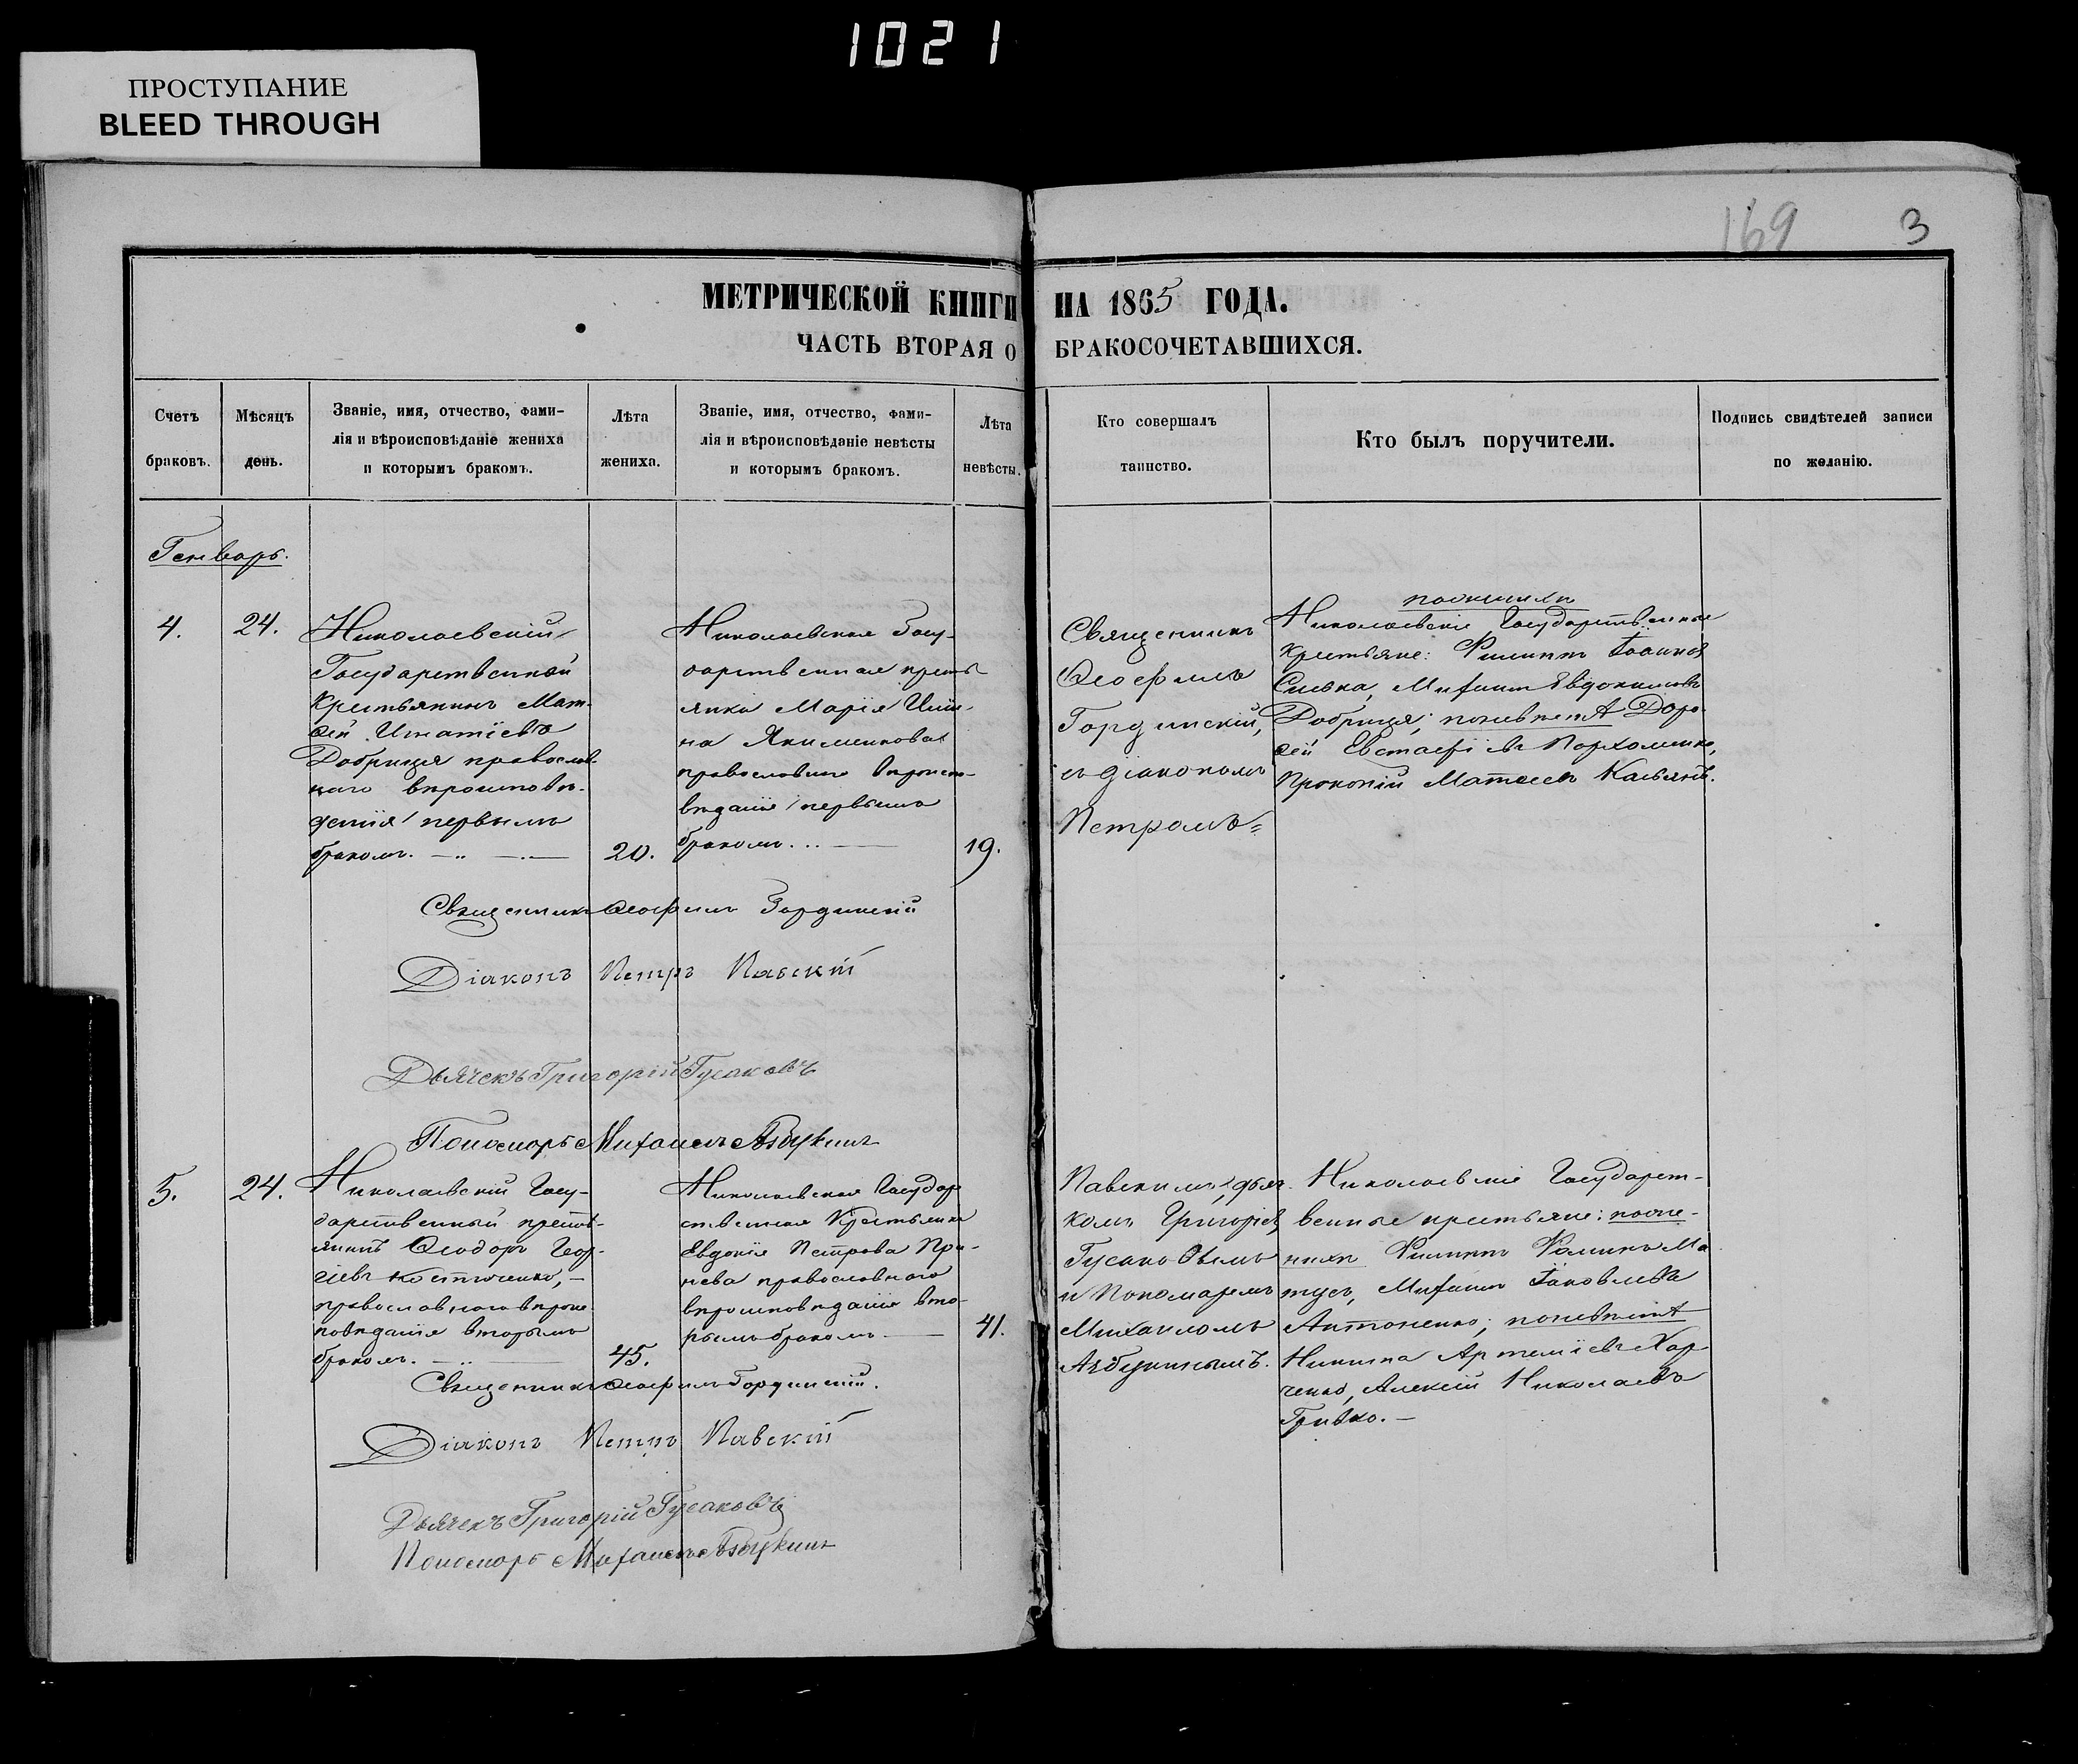 1021
ПРОСТУПАНИЕ
BLEED THROUGH
169 3
МЕТРИЧЕСКОЙ КНИГИ НА 1865 ГОДА.
ЧАСТЬ ВТОРАЯ О БРАКОСОЧЕТАВШИХСЯ.
Счетъ
браковъ.
Мѣсяцъ
день.
Званіе, имя, отчество, фами-
лія и вѣроисповѣданіе жениха
и которымъ бракомъ.
Лѣта
жениха.
Званіе, имя, отчество, фами-
лія и вѣроисповѣданіе невѣсты
и которымъ бракомъ.
Лѣта
невѣсты.
Кто совершалъ
таинство.
Кто былъ поручители.
Подпись свидѣтелей записи
по желанію.
Генварь.
4.
24.
Николаевскій
Государственный
Крестьянинъ Мат-
ѳей Игнатіевъ
Добриця православ-
наго вѣроисповѣ-
денія первымъ
бракомъ.
20.
Николаевская Госу-
дарственная кресть-
янка Марія
на Якименкова
православнаго вѣроиспо-
вѣданія первымъ
бракомъ.
19.
Священникъ
Ѳеофилъ
Гординскій,
съ діакономъ
Петромъ=
по женихѣ
Николаевскіе Государственные
Крестьяне: Филиппъ Іоанновъ
Сивка, Михаилъ Евдокимовъ
Добриця; по невѣстѣ Доро-
ѳей Евстафіевъ Пархоменко,
Прокопій Матѳеевъ Касьянъ.
Священникъ Ѳеофилъ Гординскій
Діаконъ Петръ Павскій
Дьячекъ Григорій Гусаковъ
Пономарь Михаилъ Азбукинъ
5.
24.
Николаевскій Госу-
дарственный кресть-
янинъ Ѳеодоръ Геор-
гіевъ Костюченко,
православнаго вѣроис-
повѣданія вторымъ
бракомъ.
45.
Николаевская Государ-
ственная Крестьянка
Евдокія Петрова При-
нева православнаго
вѣроисповѣданія вто-
рымъ бракомъ.
41.
Павскимъ, дьяч-
комъ Григоріемъ
Гусаковымъ
и Пономаремъ
Михаиломъ
Азбукинымъ.
Николаевскіе Государст-
венные крестьяне: по же-
нихѣ Филиппъ Фоминъ Ма-
тусъ, Михаилъ Іаковлевъ
Антоненко; по невѣстѣ
Никита Артеміевъ Хар-
ченко, Алексій Николаевъ
Гривко.
Священникъ Ѳеофилъ Гординскій.
Діаконъ Петръ Павскій
Дьячекъ Григорій Гусаковъ
Пономарь Михаилъ Азбукинъ